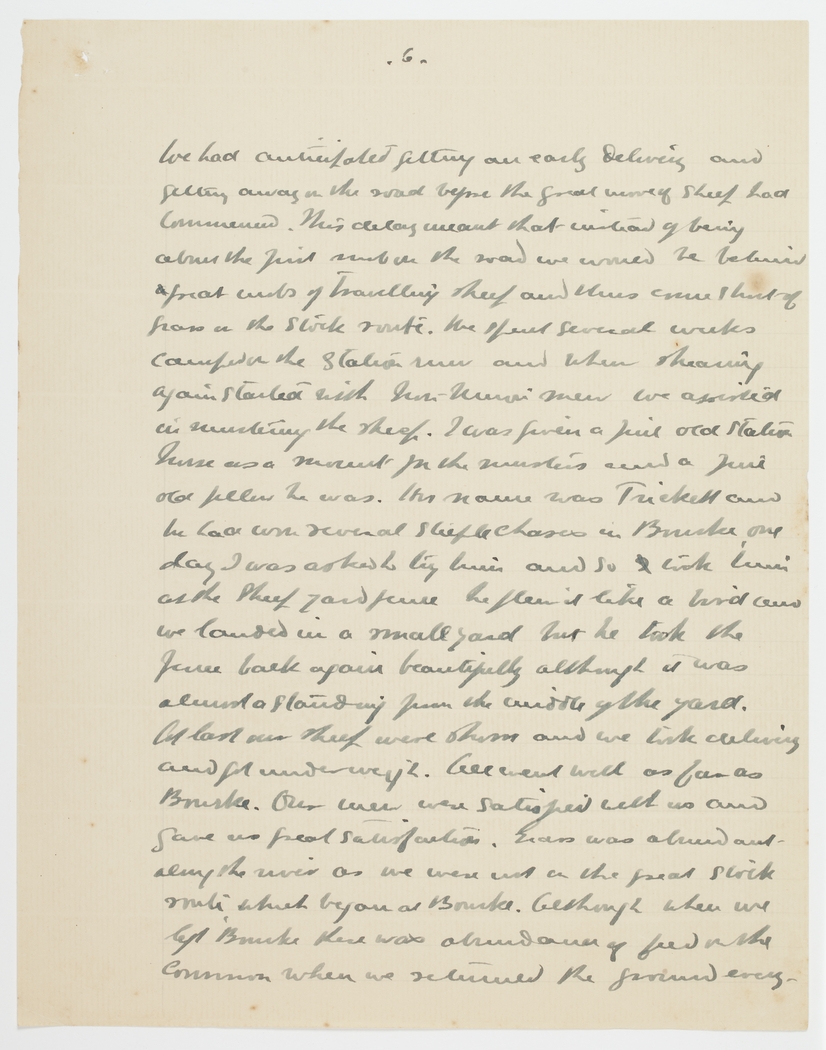 . 6 .
We had anticipated getting an early delivery and
getting away on the road before the great move of sheep had
commenced. This delay meant that instead of being
about the first mob on the road we would be behind
great mobs of travelling sheep and thus come short of
grass on the stock route. We spent several weeks
camped on the Station run and when shearing
again started with Non-Union men we assisted
in mustering the sheep. I was given a fine old Station
horse as a mount for the musters and a fine
old fellow he was. His name was Trickett and
he had won several Steeplechases in Bourke, one
day I was asked to try him and so I took him
at the Sheep yard fence he flew it like a bird and
we landed in a small yard but he took the
fence back again beautifully although it was
almost a standing from the middle of the yard.
At last our sheep were shorn and we took delivery
and got underweigh. All went well as far as
Bourke. Our men were satisfied with us and
gave us great satisfaction. Grass was abundant
along the river as we were not on the great Stock
route which began at Bourke. Although when we
left Bourke there was abundance of feed on the
Common when we returned the ground every-